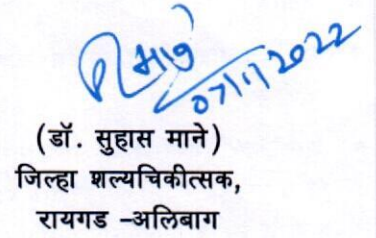 07/11/2022
(डॉ. सुहास माने)
जिल्हा शल्यचिकीत्सक,
रायगड -अलिबाग